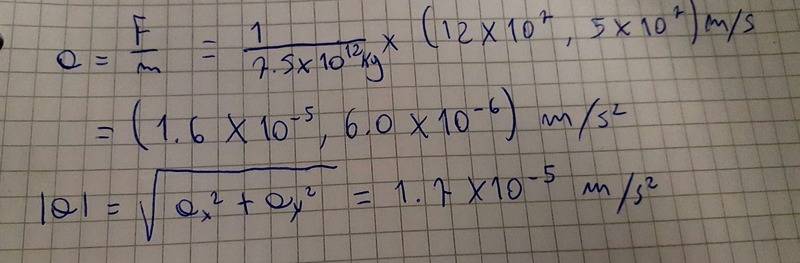 a = F/m = 1/(7.5×10¹² kg) × (12×10⁷, 5×10⁷) m/s
= (1.6×10⁻⁵, 6.0×10⁻⁶) m/s²
|a| = √(aₓ² + a_y²) = 1.7×10⁻⁵ m/s²